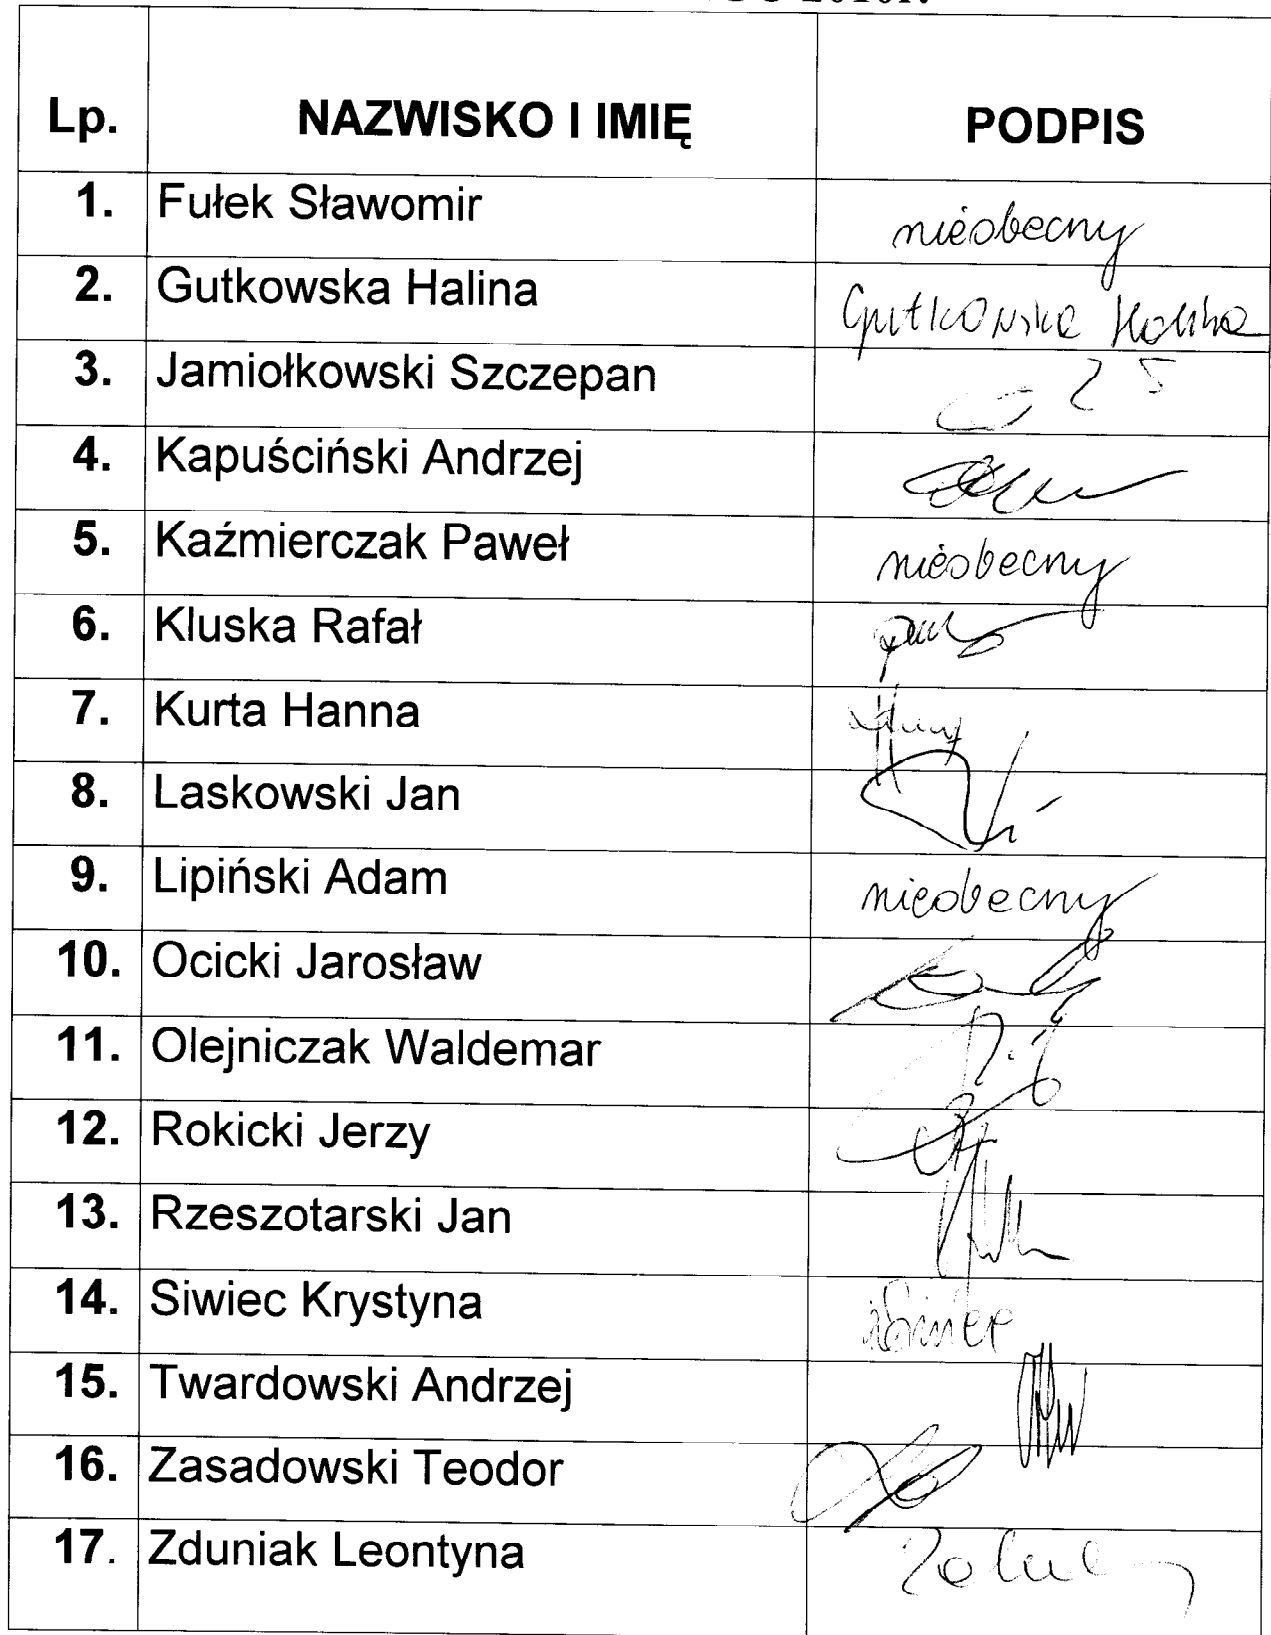 2010r.
Lp. NAZWISKO I IMIĘ PODPIS
1. Fułek Sławomir nieobecny
2. Gutkowska Halina Gutkowska Halina
3. Jamiołkowski Szczepan
4. Kapuściński Andrzej
5. Kaźmierczak Paweł nieobecny
6. Kluska Rafał
7. Kurta Hanna
8. Laskowski Jan
9. Lipiński Adam nieobecny
10. Ocicki Jarosław
11. Olejniczak Waldemar
12. Rokicki Jerzy
13. Rzeszotarski Jan
14. Siwiec Krystyna
15. Twardowski Andrzej
16. Zasadowski Teodor
17. Zduniak Leontyna